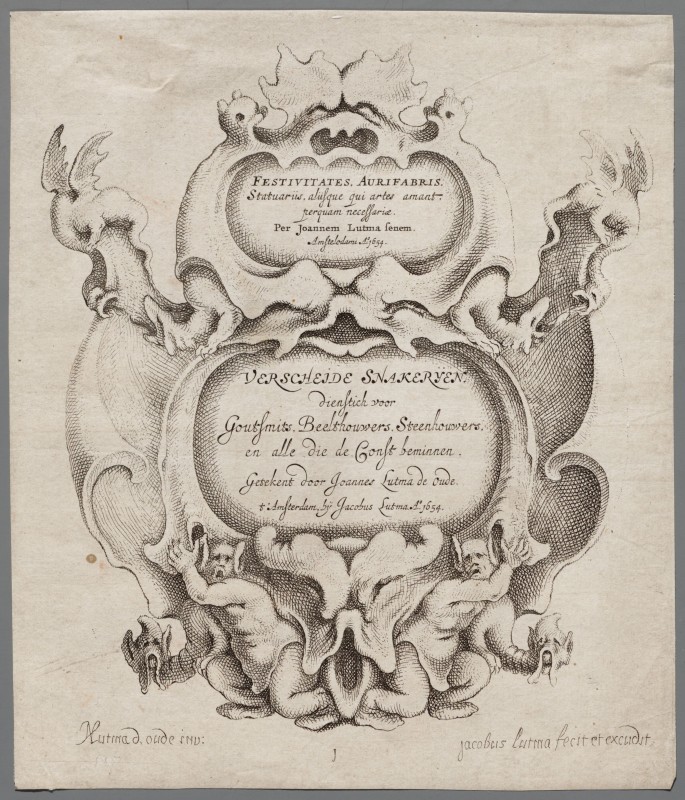 FESTIVITATES, AURIFABRIS,
Statuariis, aliisque qui artes amant
perquam necessariæ.
Per Joannem Lutma senem.
Amstelodami Aº 1654.
VERSCHEIDE SNAKERYEN,
dienstich voor
Goutsmits, Beelthouwers, Steenhouwers,
en alle die de Const beminnen.
Getekent door Joannes Lutma de oude
t'Amsterdam, bij Jacobus Lutma Aº 1654.
JLutma d. oude inv:
jacobus lutma fecit et excudit
1